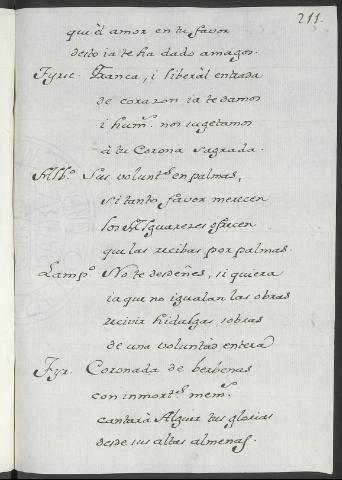 211.
que el amor en tu favor
desto ia te ha dado amagos.
Fyrie. Franca, i liberàl entrada
de corazon ia te damos
i hum.^e nos sugetamos
à tu Corona sagrada.
Alb.º Sus volunt.^s en palmas,
si tanto favor merecen
los Alguereres ofrecen
que las recibas por palmas.
Lamp.º No te desdeñes, si quiera
ia que no igualan las obras
recivir hidalgas sobras
de una voluntàd entera
Fyr. Coronada de berbenas
con inmort.^s mem.^s
cantarà Alguer tus glorias
desde sus altas almenas.